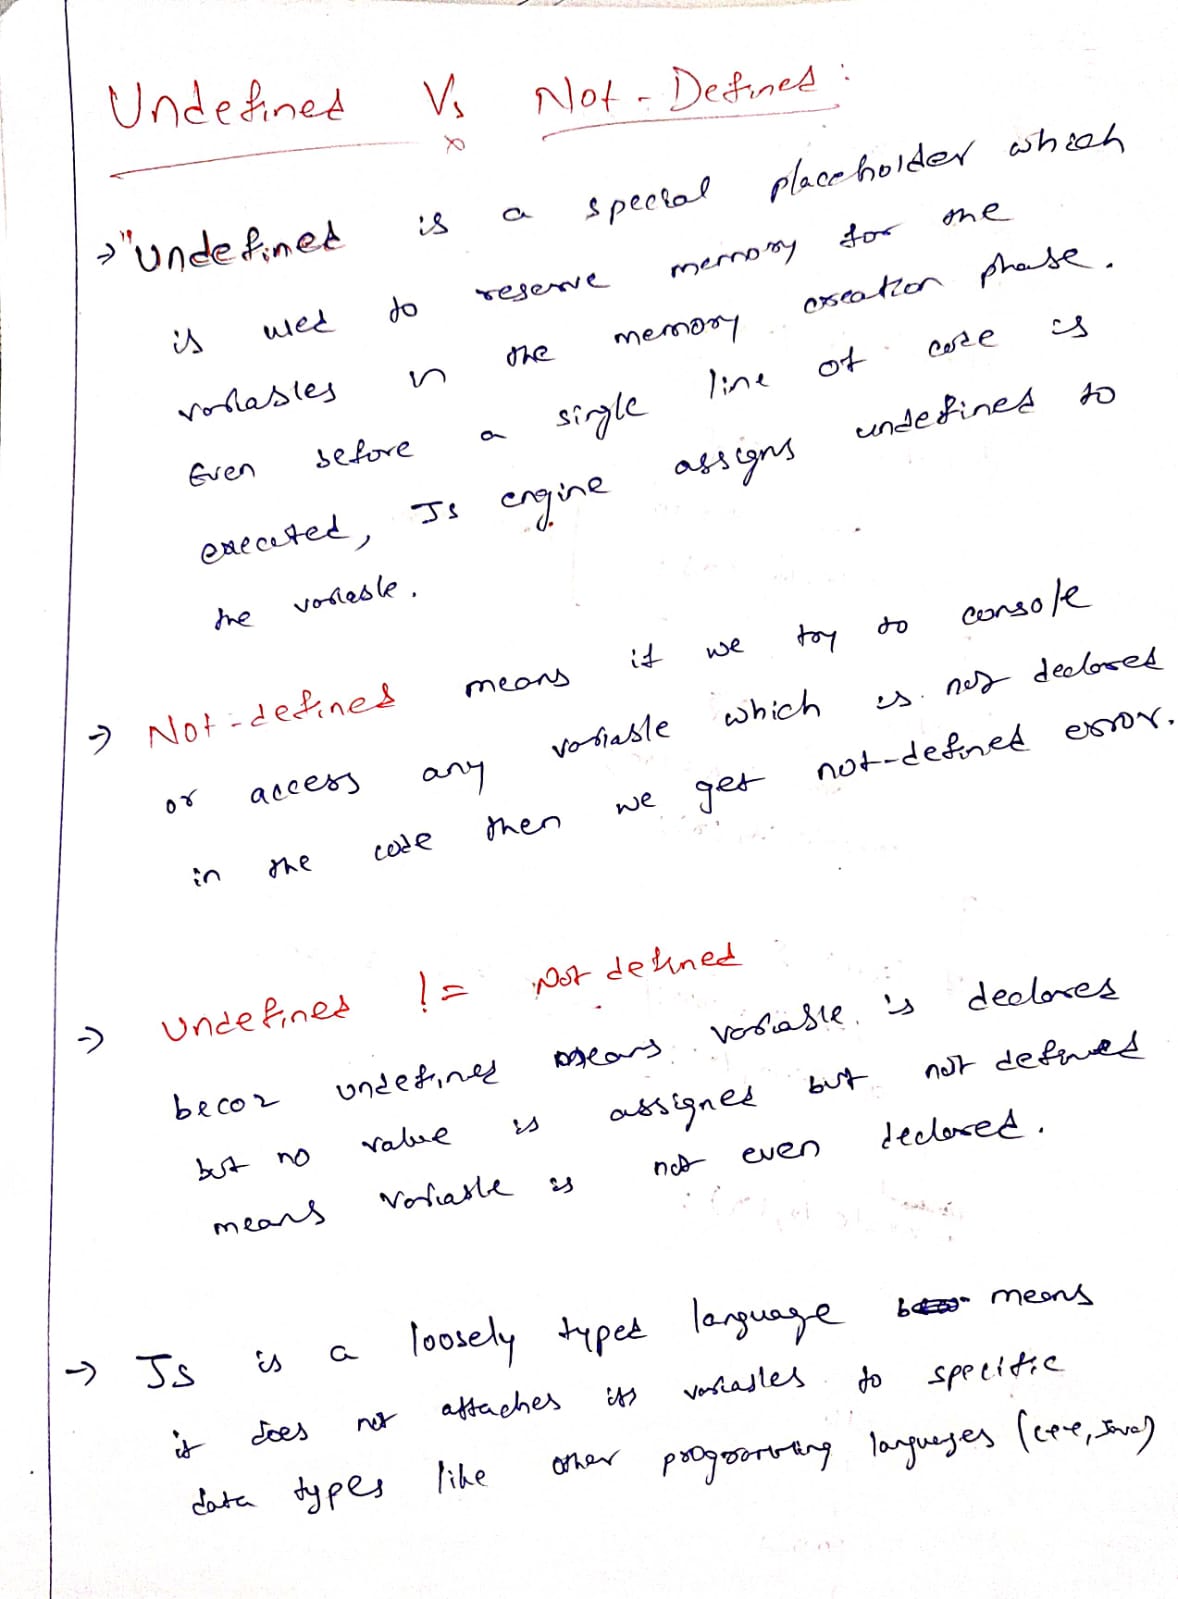 Undefined Vs Not-Defined:
→ "Undefined is a special placeholder which
is used to reserve memory for the
variables in the memory creation phase.
Even before a single line of code is
executed, Js engine assigns undefined to
the variable.
→ Not-defined means if we try to console
or access any variable which is not declared
in the code then we get not-defined error.
→ Undefined != Not defined
becoz undefined means variable is declared
but no value is assigned but not defined
means variable is not even declared.
→ JS is a loosely typed language means
it does not attaches its variables to specific
data types like other programming languages (c++, Java)